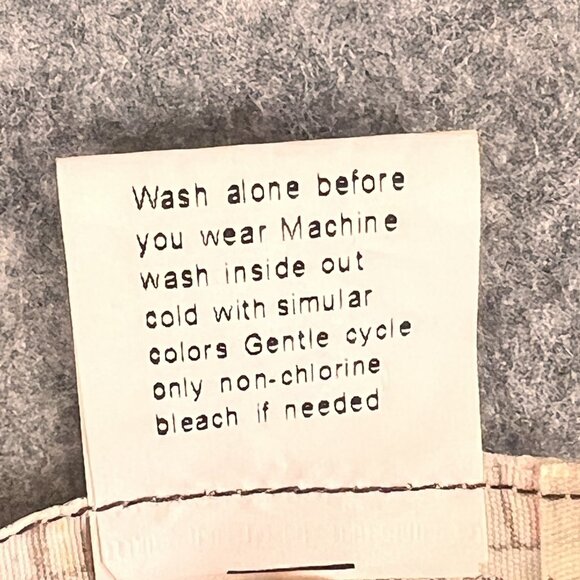 Wash alone before
you wear Machine
wash inside out
cold with simular
colors Gentle cycle
only non-chlorine
bleach if needed